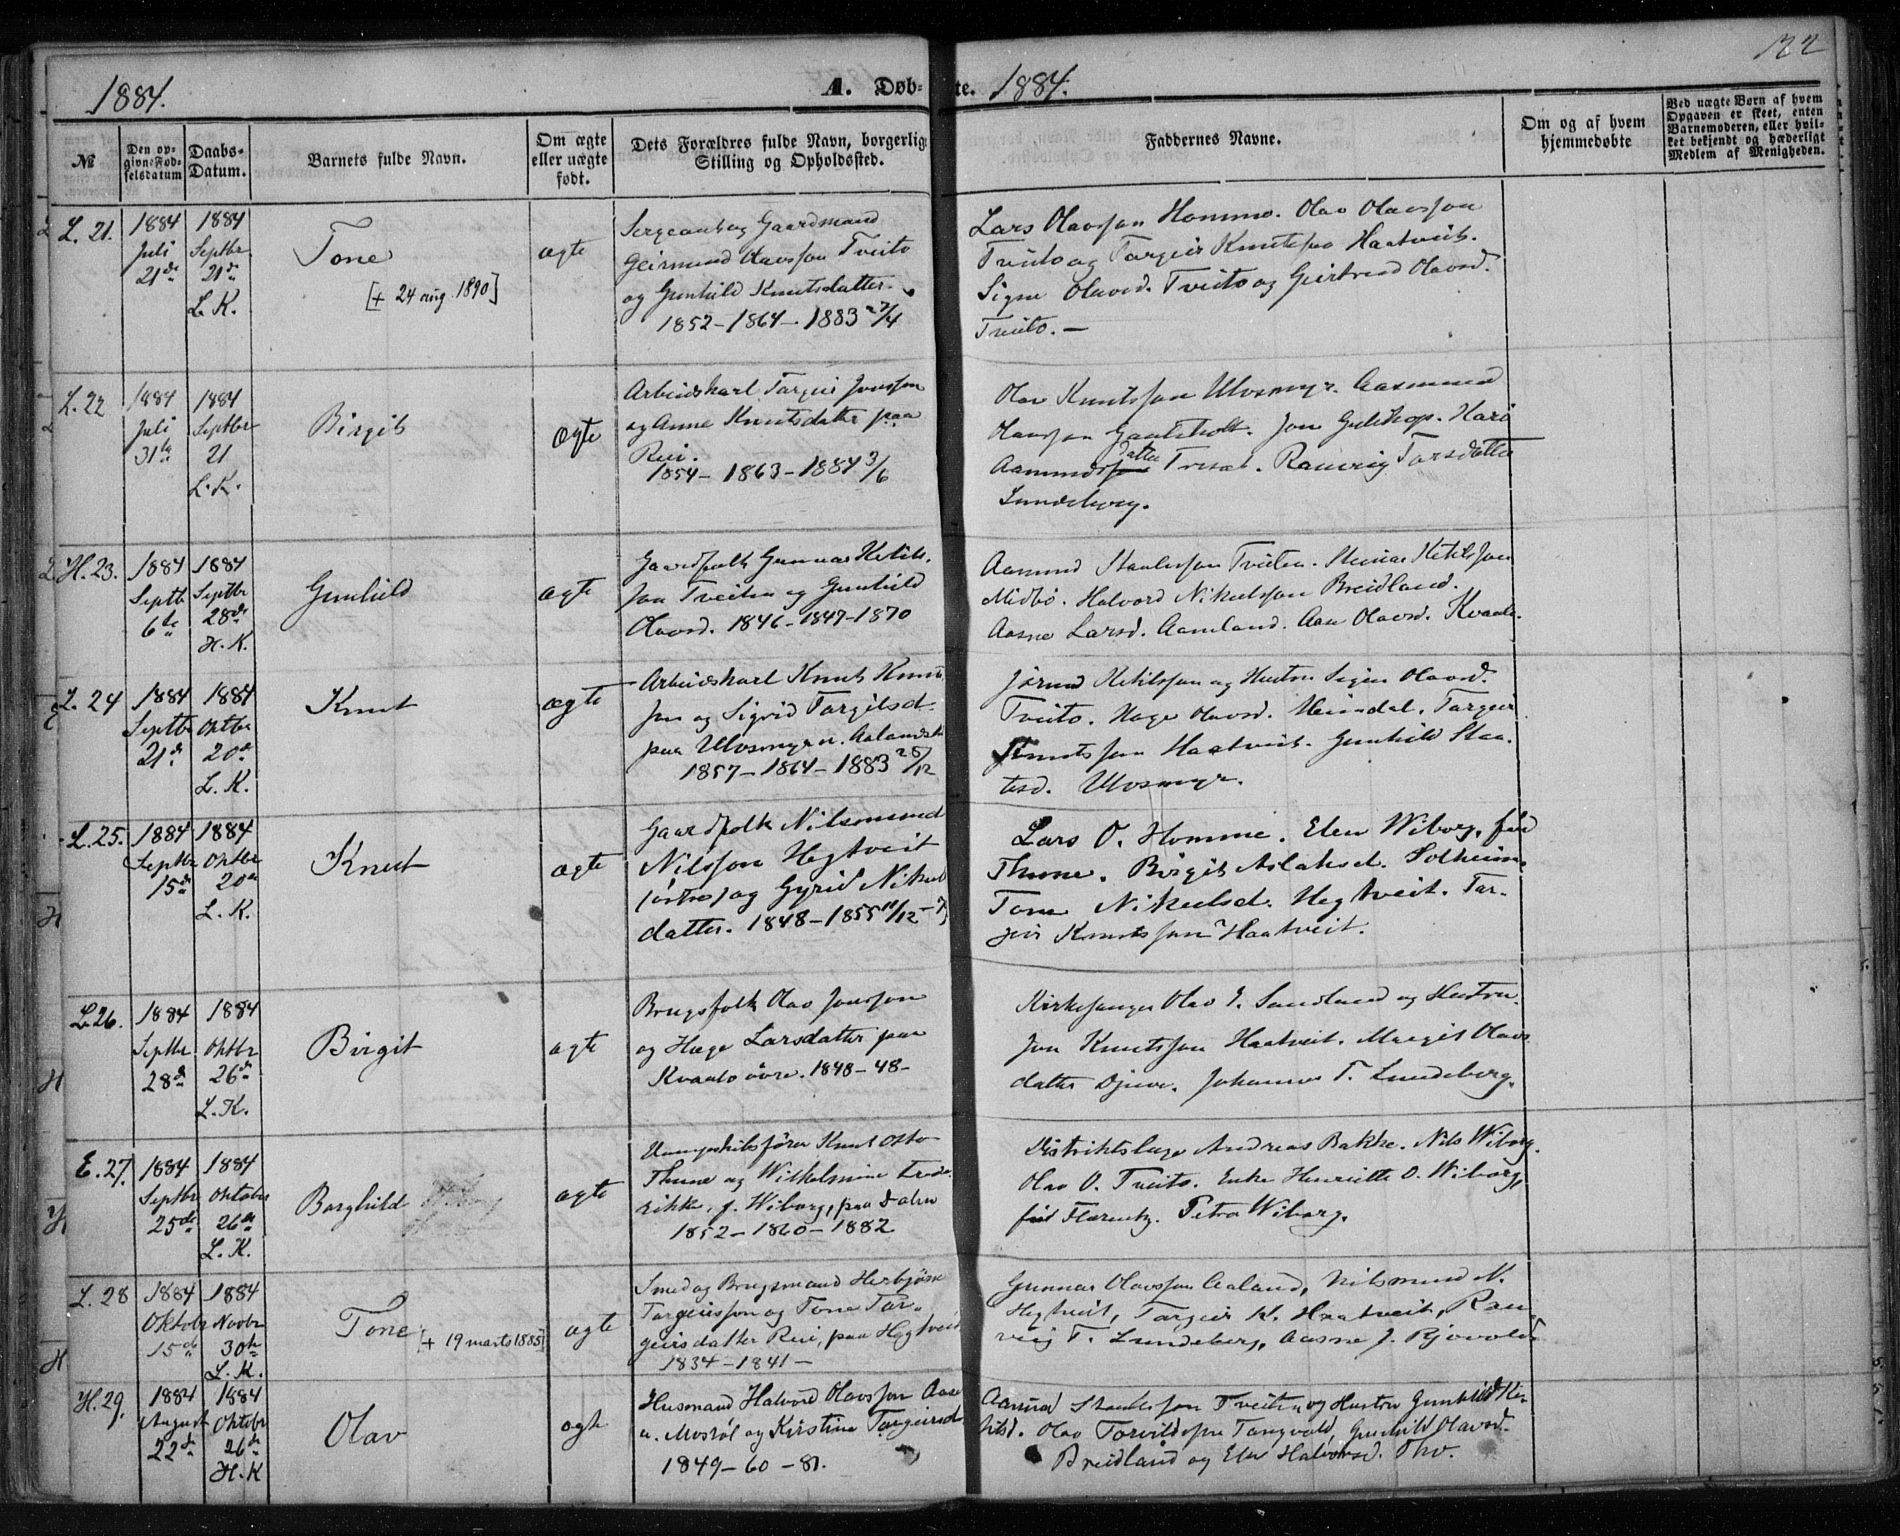 122
1884.
A. Døb-
te. 1884.
№
Den op-
givne Fød-
selsdatum
Daabs-
Datum.
Barnets fulde Navn.
Om ægte
eller uægte
født.
Dets Forældres fulde Navn, borgerlig
Stilling og Opholdssted.
Faddernes Navne.
Om og af hvem
hjemmedøbte
Ved uægte Børn af hvem
Opgaven er skeet, enten
Barnemoderen, eller hvil-
ket bekjendt og hæderligt
Medlem af Menigheden.
L. 21.
1884
Juli
21de
1884
Septbr
21de
L. K.
Tone
[+ 24 aug. 1890]
ægte
Sergeant og Gaardmand
Geirmund Olavsson Tveito
og Gunhild Knutsdatter
1852 - 1864 - 1883 2/4
Lars Olavsson Homme. Olav Olavsson
Tveito og Targeir Knutsson Haatveit.
Signe Olavsd. Tveito og Geirtrud Olavsd.
Tveito. -
L. 22
1884
Juli
31te
1884
Septbr
21
L. K.
Birgit
ægte
Arbeidskarl Targei Jonsson
og Anne Knutsdatter paa
Rui.
1854 - 1863 - 1884 3/6
Olav Knutsson Ulvsmyr. Aasmund
Olavsson Gautsholt. Jon Gulskop. Kari
Aamunds datter Tvisæt. Ranveig Tarsdatter
Lundeberg.
H. 23.
1884
Septb
6te
1884
Septbr
28de
H. K.
Gunhild
ægte
Gaardfolk Gunnar Ketils-
son Tveiten og Gunhild
Olavsd. 1846 - 1847 - 1870
Aamund Staalesson Tveiten. Steinar Ketilsson
Midbö. Halvord Nikulsson Breidland.
Aasne Larsd. Aamland. Aan Olavsd. Kvaale.
L. 24
1884
Septbr
21de
1884
Oktbr
20de
L. K.
Knut
ægte
Arbeidskarl Knut Knuts
son og Sigrid Targeisd.
paa Ulvsmyr u. Aalands
1857 - 1864 - 1883 28/12
Jörund Ketilsson og Hustru Signe Olavsd.
Tveito. Hæge Olavsd. Heimdal. Targeir
Knutsson Haatveit. Gunhild Staa-
lesd. Ulvsmyr.
L. 25.
1884
Septbr
15de
1884
Oktbr
20de
L. K.
Knut
ægte
Gaardfolk Nilsmund
Nilsson Hegtveit
(östre) og Gyrid Nikuls
datter. 1848 - 1855 11/12 -
Lars O. Homme. Elen Wiborg, född
Thune. Birgit Aslaksd. Solheim.
Tone Nikulsd. Hegtveit. Tar-
geir Knutsson Haatveit.
L. 26.
1884
Septbr
28de
1884
Oktbr
26de
L. K.
Birgit
ægte
Brugsfolk Olav Jonsson
og Hæge Larsdatter paa
Kvaale övre. 1848 - 48 -
Kirkesanger Olav E. Sandland og Hustru.
Jon Knutsson Haatveit. Margit Olavs
datter Djuve. Johanne T. Lundeberg.
L. 27.
1884
Septbr
25de
1884
Oktobr
26de
L. K.
Borghild
ægte
Dampskibsförer Knut Otto
Thune og Wilhelmine Fred-
rikke, f. Wiborg, paa Dalen
1852 - 1860 - 1882
Distriktslæge Andreas Bakke. Nils Wiborg.
Olav O. Tveito. Enke Henriette O. Wiborg,
föd Florentz. Petra Wiborg.
L. 28
1884
Oktobr
15de
1884
Novbr
30te
L. K.
Tone
[+ 19 marts 1885]
ægte
Smed og Brugsmand Herbjörn
Targeirsson og Tone Tar-
geirsdatter Rui, paa Hegtveit
1834 - 1841 -
Gunnar Olavsson Aaland, Nilsmund N.
Hegtveit, Targeir K. Haatveit, Ran-
veig T. Lundeberg, Aasne J. Bjovold
H. 29.
1884
August
22de
1884
Oktobr
26de
H. K
Olav
ægte
Husmand Halvord Olavsson Aase
u. Mosböl og Kirstine Targeirsd
1849 - 60 - 81.
Aamund Staalesson Tveiten og Hustru Gunhild Ke-
tilsd. Olav Torvildsson Tangvald, Gunhild Olavsd.
Breidland og Else Halvorsd. Tho.